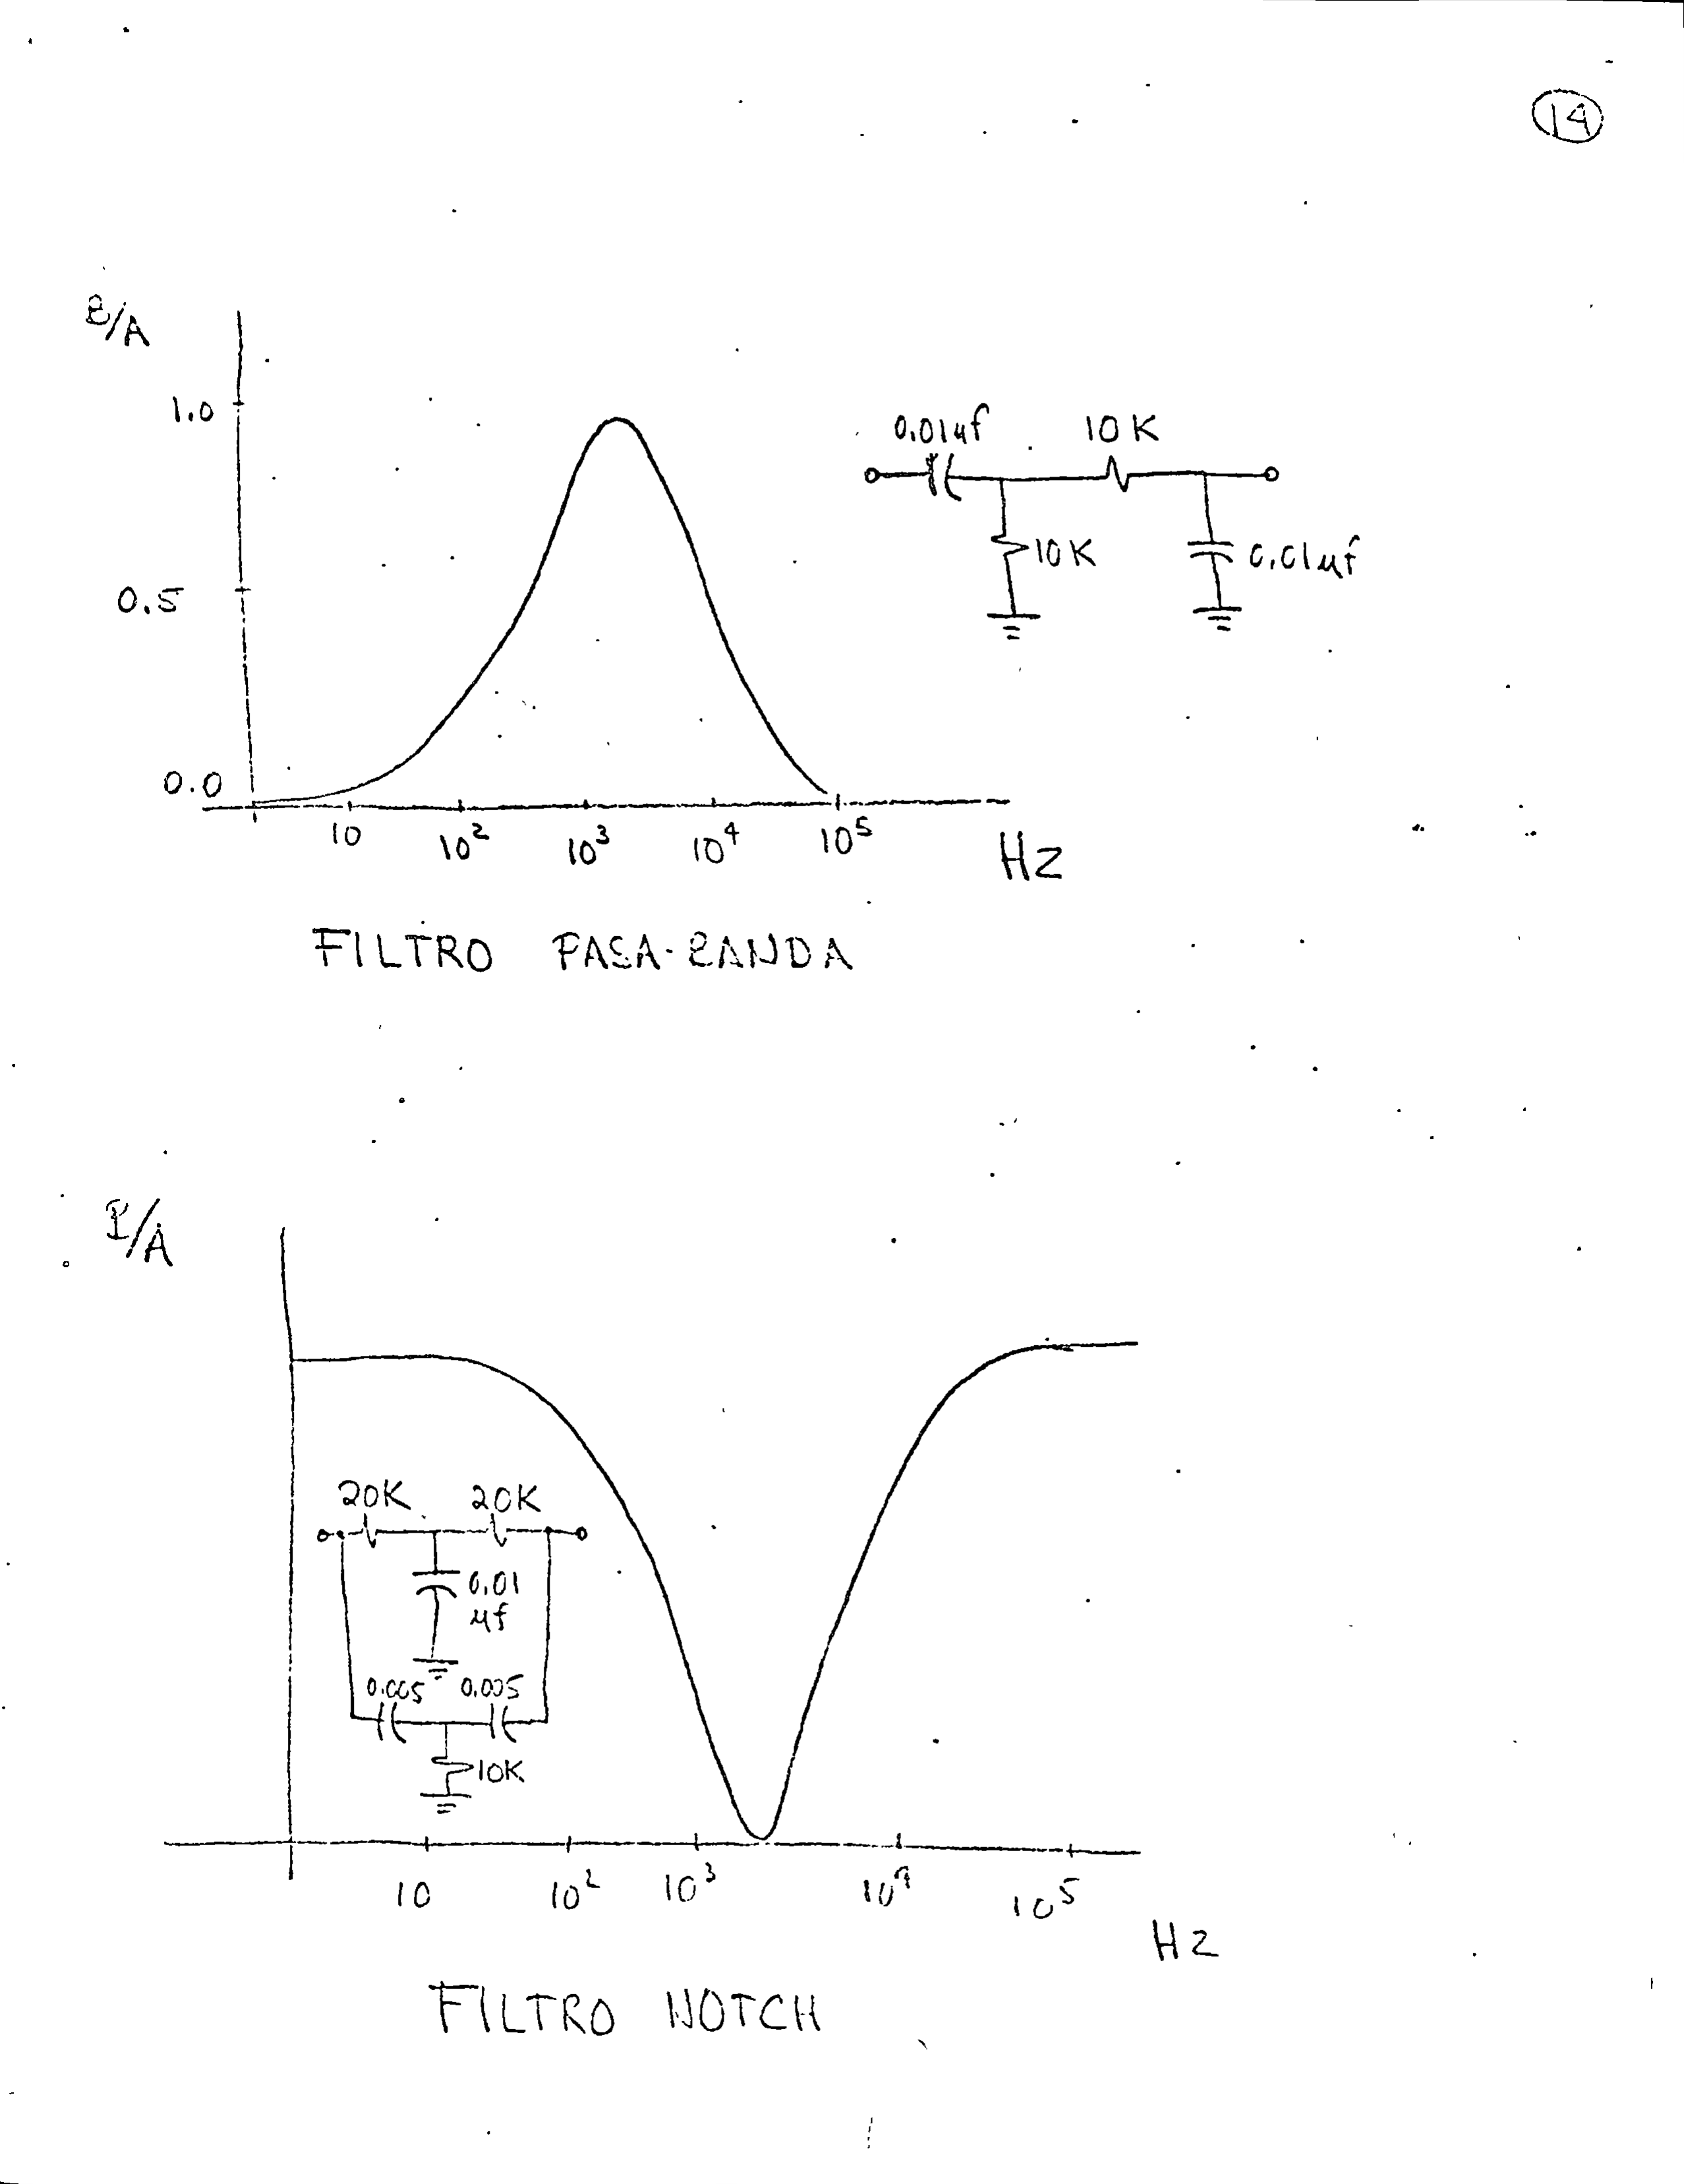 14
B/A
1.0
0.5
0.0
0.01µf
10K
10K
0.01µf
10
10²
10³
10⁴
10⁵
Hz
FILTRO PASA-BANDA
B/A
20K
20K
0.01
µf
0.005
0.005
10K
10
10²
10³
10⁴
10⁵
Hz
FILTRO NOTCH